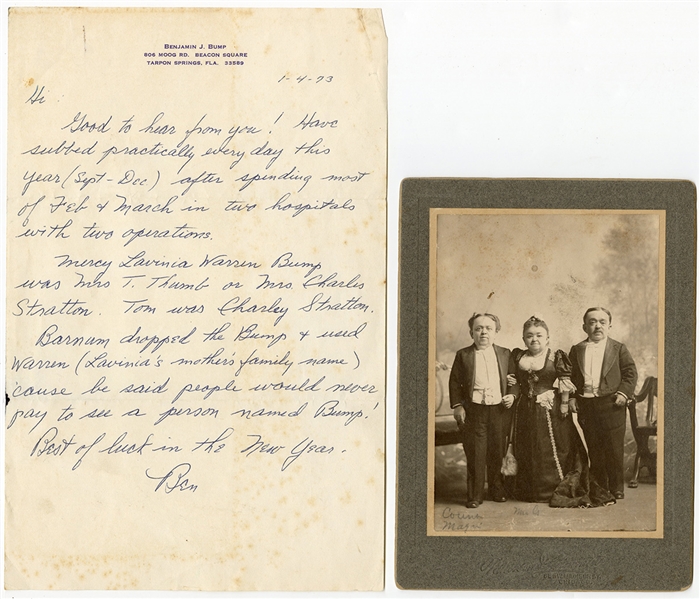 BENJAMIN J. BUMP
806 MOOG RD. BEACON SQUARE
TARPON SPRINGS, FLA. 33589
1-4-73
Hi
Good to hear from you! Have
subbed practically every day this
year (Sept-Dec) after spending most
of Feb & March in two hospitals
with two operations.
Mercy Lavinia Warren Bump
was Mrs T. Thumb or Mrs. Charles
Stratton. Tom was Charley Stratton.
Barnum dropped the Bump & used
Warren (Lavinia's mother's family name)
'cause he said people would never
pay to see a person named Bump!
Best of luck in the New Year.
Ben
Magri